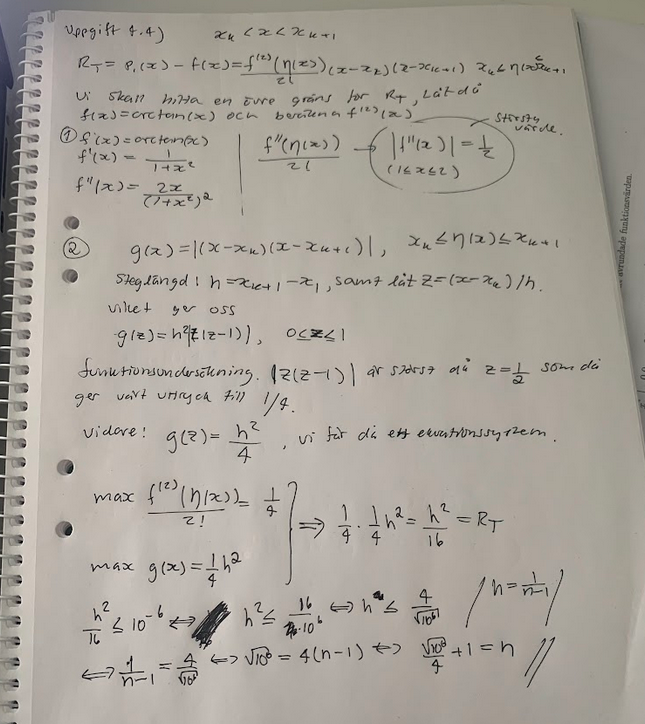 Uppgift 4.4) x_k < x < x_{k+1}
R_T = P_1(x) - f(x) = f^{(2)}(η(x))/2! (x-x_k)(x-x_{k+1}) x_k ≤ η(x) ≤ x_{k+1}
Vi skall hitta en övre gräns för R_T, Låt då
f(x)=arctan(x) och beräkna f^{(2)}(x)
största värde.
① f(x)=arctan(x)
f'(x) = 1/(1+x²)
f''(x) = 2x/(1+x²)²
f''(η(x))/2! → |f''(x)| = 1/2
(1≤x≤2)
② g(x) = |(x-x_k)(x-x_{k+1})|, x_k ≤ η(x) ≤ x_{k+1}
Steglängd: h = x_{k+1} - x_1, samt låt z = (x-x_k)/h.
vilket ger oss
g(z) = h²|z(z-1)|, 0≤z≤1
funktionsundersökning. |z(z-1)| är störst då z=1/2 som då
ger vårt uttryck till 1/4.
Vidare: g(z) = h²/4, vi får då ett ekvationssystem.
max f^{(2)}(η(x))/2! = 1/4
max g(x) = 1/4 h²
⇒ 1/4 · 1/4 h² = h²/16 = R_T
h²/16 ≤ 10^{-6} ⇔ h² ≤ 16/10^6 ⇔ h ≤ 4/√10^6 /h = 1/(n-1)/
⇔ 1/(n-1) = 4/√10^6 ⇔ √10^6 = 4(n-1) ⇔ √10^6/4 + 1 = n //
avrundade funktionsvärden.